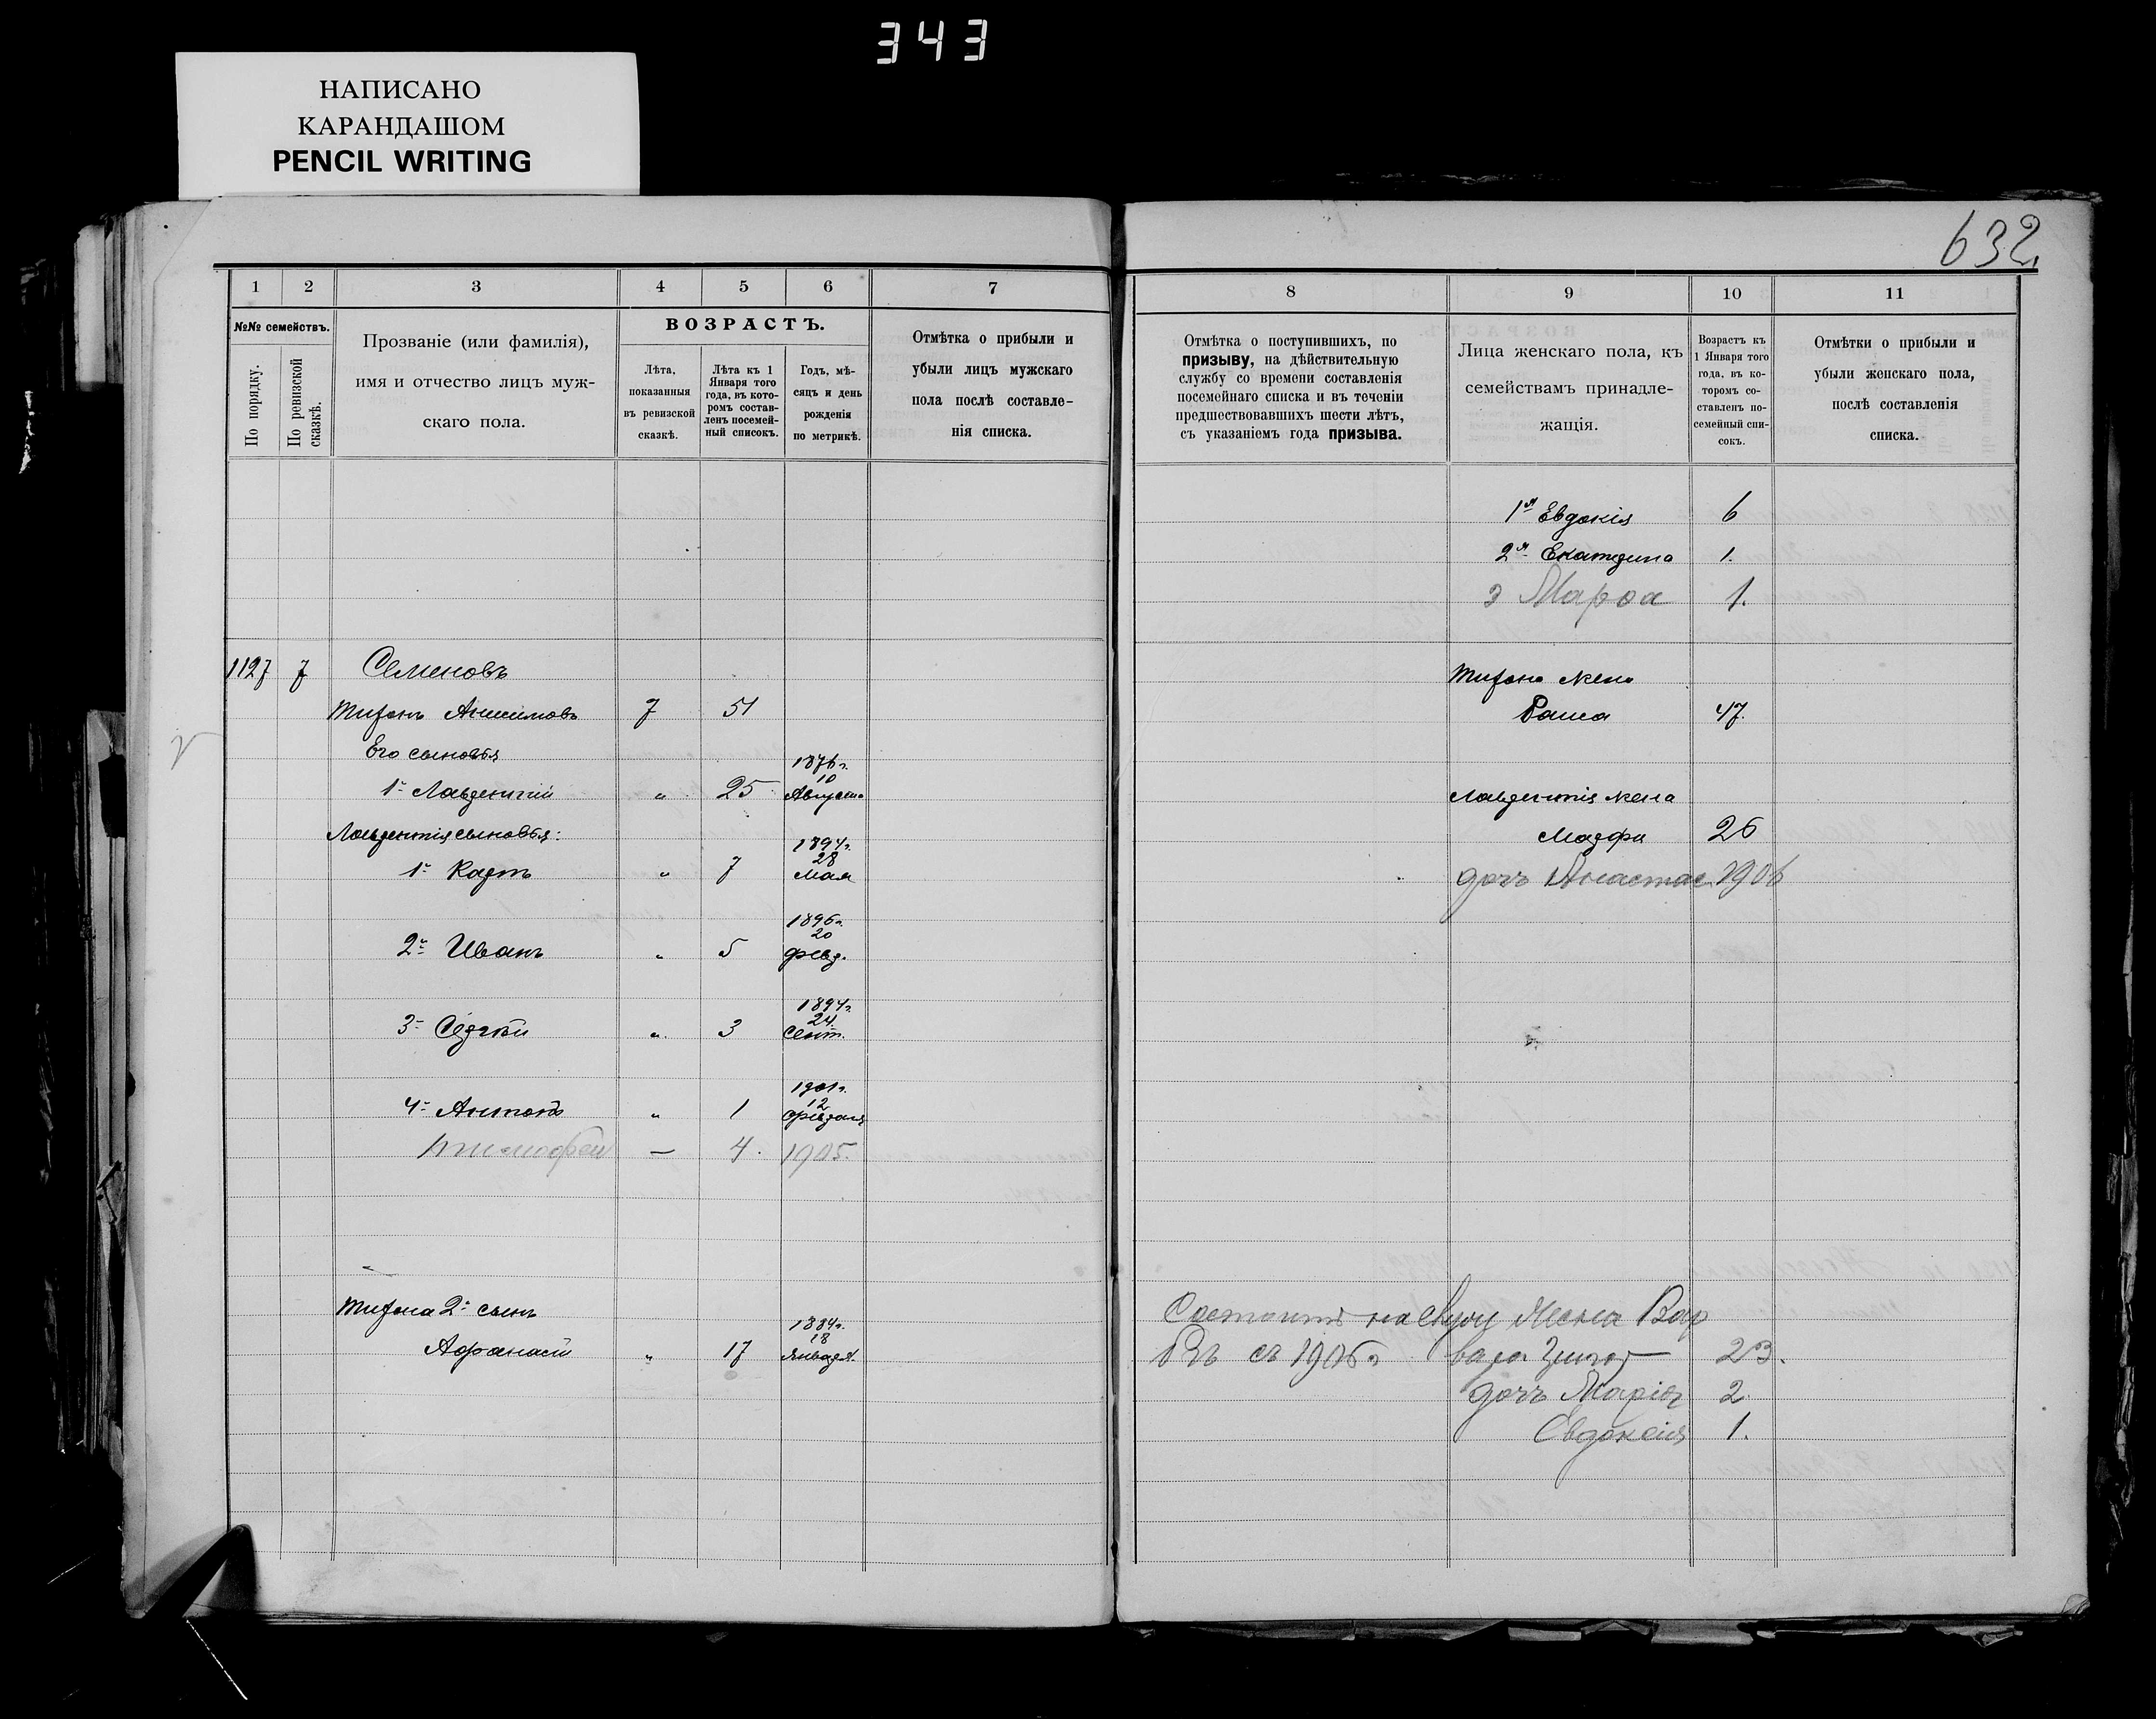 343
НАПИСАНО
КАРАНДАШОМ
PENCIL WRITING
632
1 2 3 4 5 6 7
№№ семействъ.
По порядку.
По ревизской сказкѣ.
Прозваніе (или фамилія),
имя и отчество лицъ муж-
скаго пола.
ВОЗРАСТЪ.
Лѣта,
показанныя
въ ревизской
сказкѣ.
Лѣта къ 1
Января того
года, въ кото-
ромъ состав-
ленъ посемей-
ный списокъ.
Годъ, мѣ-
сяцъ и день
рожденія
по метрикѣ.
Отмѣтка о прибыли и
убыли лицъ мужскаго
пола послѣ составле-
нія списка.
1127 7 Семеновъ
Тифонъ Анисимовъ 7 51
Его сыновья
1876 г.
10
1й Лаврентій " 25 Августа
Лаврентія сыновья:
1894 г.
28
1й Карпъ " 7 Мая
1896 г.
20
2й Иванъ " 5 февр.
1897 г.
24
3й Сергѣй " 3 Сент.
1901 г.
12
4й Антонъ " 1 февраля
Тимофей — 4. 1905
Тифона 2й сынъ
1884 г.
18
Афанасій " 17 Января.
8 9 10 11
Отмѣтка о поступившихъ, по
призыву, на дѣйствительную
службу со времени составленія
посемейнаго списка и въ теченіи
предшествовавшихъ шести лѣтъ,
съ указаніемъ года призыва.
Лица женскаго пола, къ
семействамъ принадле-
жащія.
Возрастъ къ
1 Января того
года, въ ко-
торомъ со-
ставленъ по-
семейный спи-
сокъ.
Отмѣтки о прибыли и
убыли женскаго пола,
послѣ составленія
списка.
1я Евдокія 6
2я Екатерина 1.
3 Марѳа 1.
Тифона жена
Раиса 47.
Лаврентія жена
Марфа 26
дочь Анастас 1906
Состоитъ на жена Вар
съ 1906 г вара 23.
дочь Марія 2
Евдокія 1.